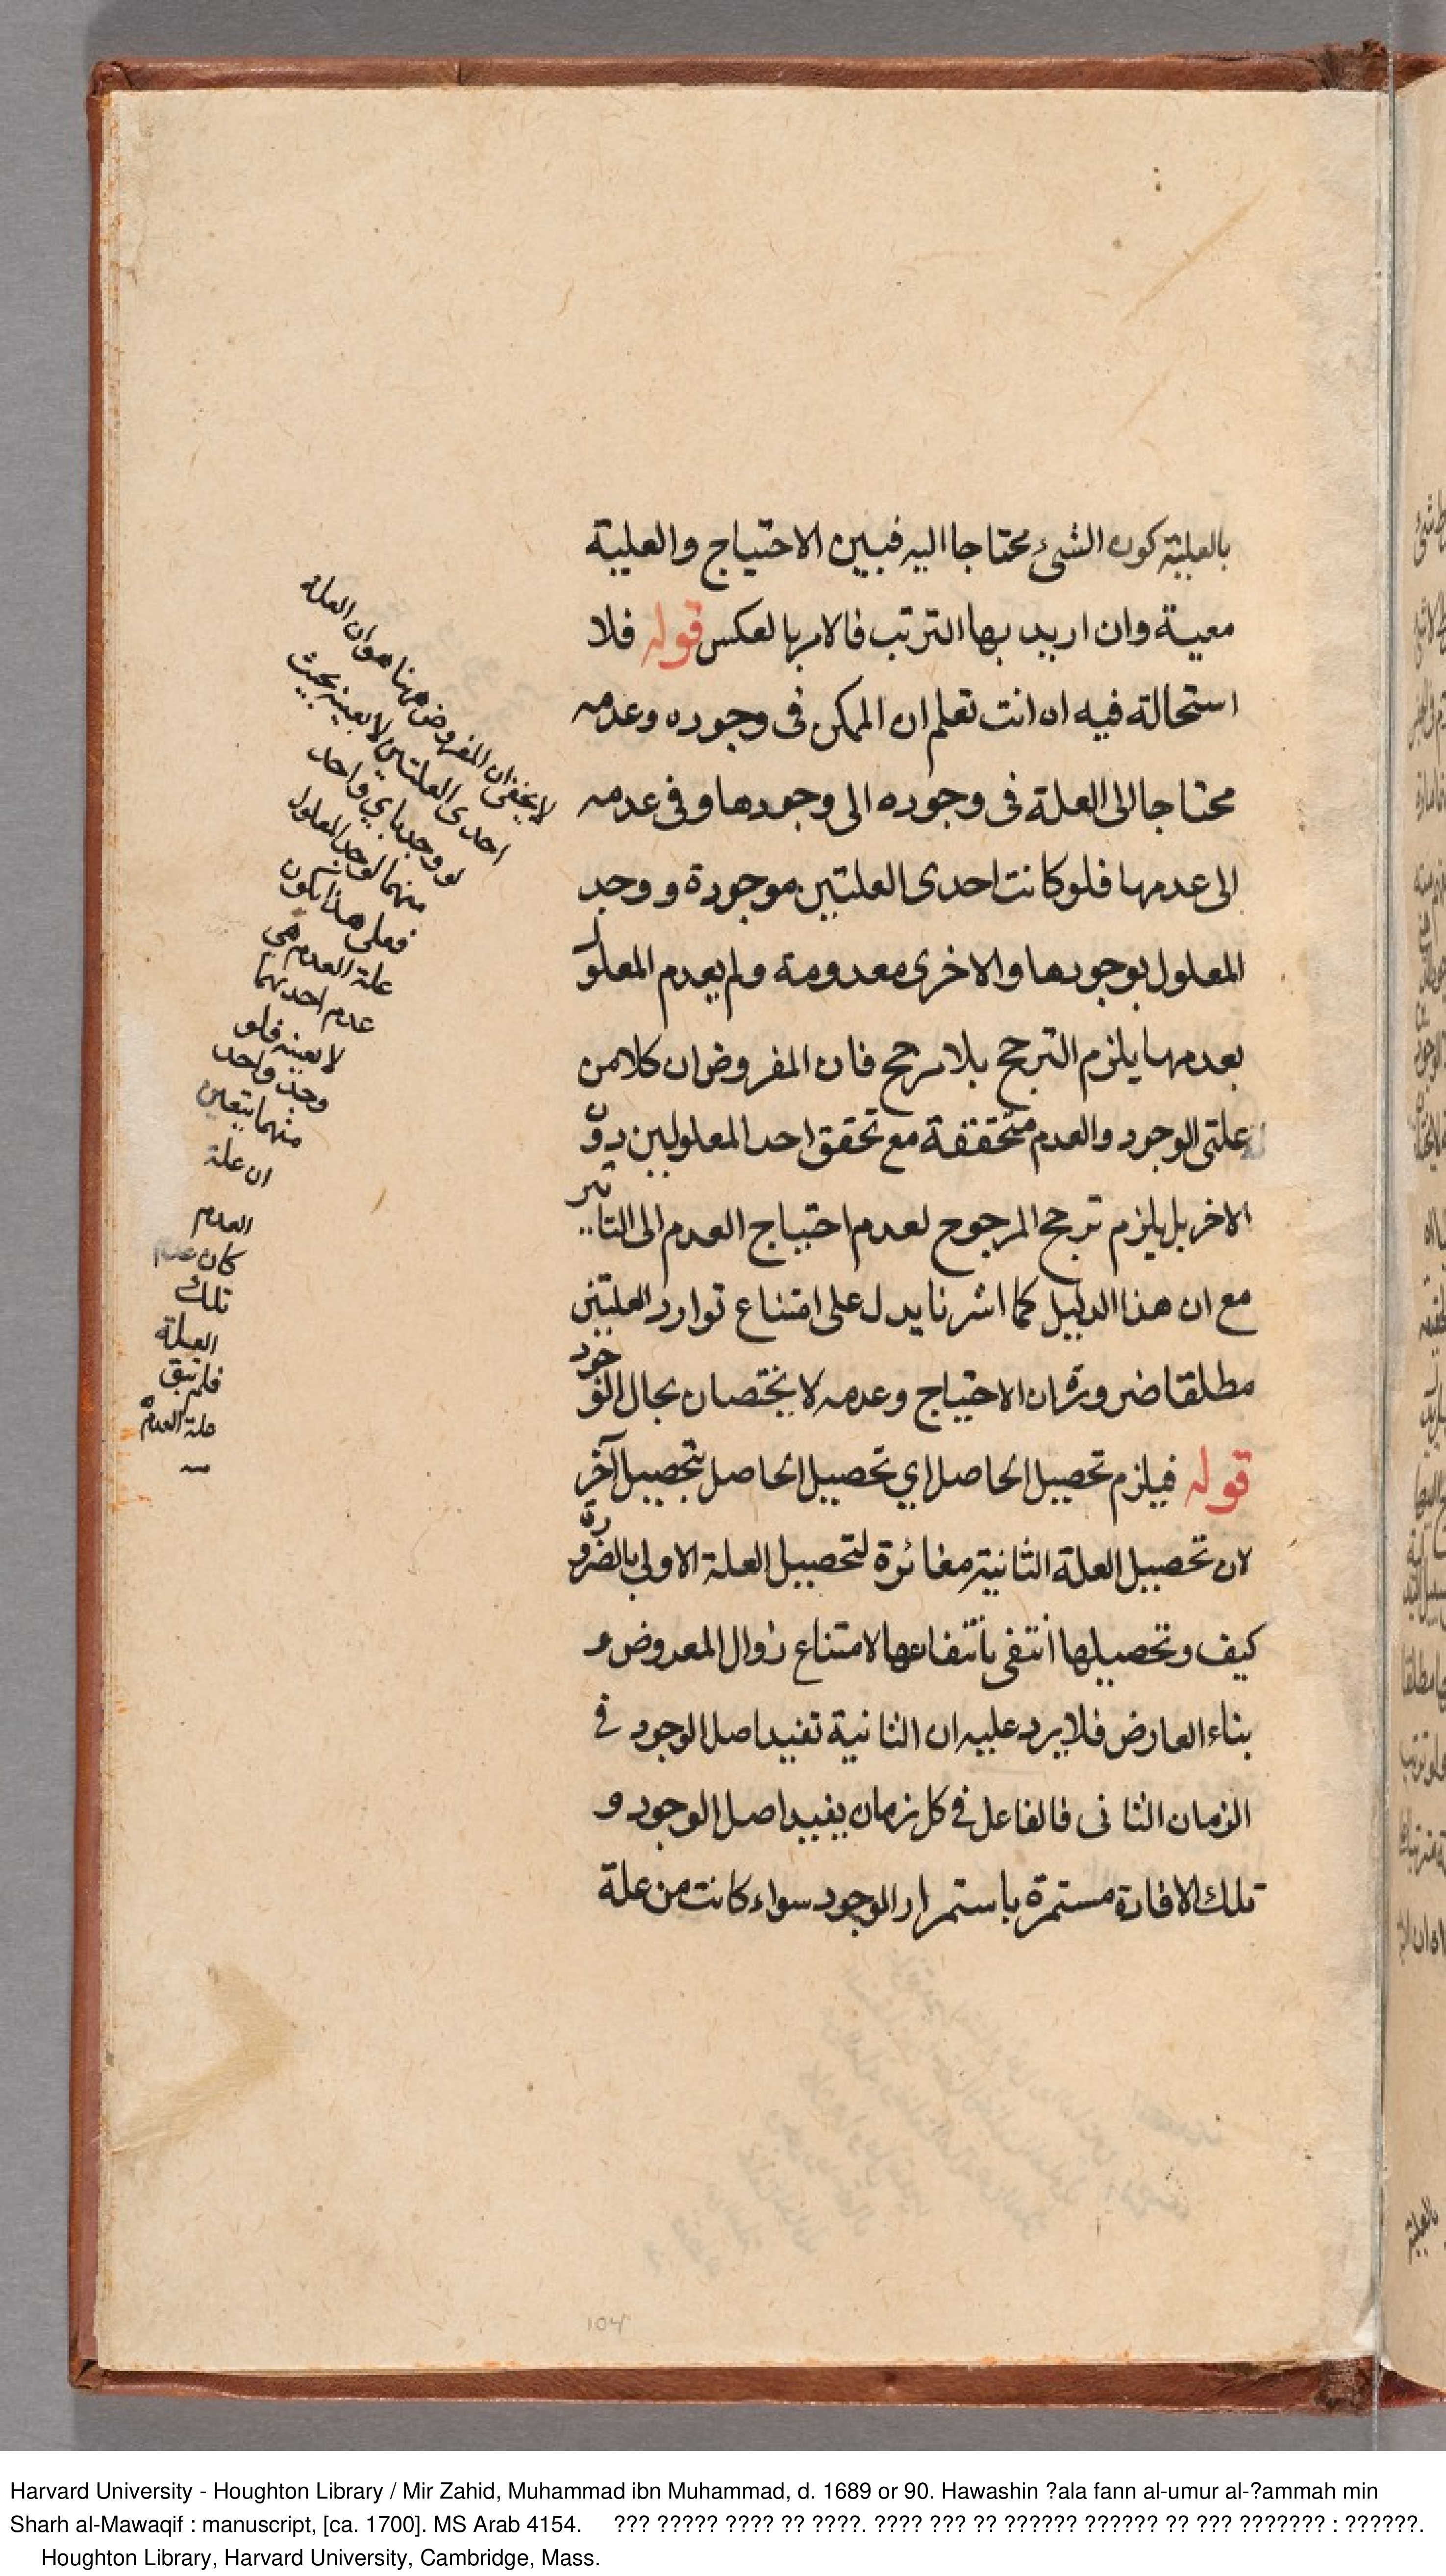 بالعلية كون الشیء محتاجا اليه فبين الاحتياج والعلية
معية وان اريد بها الترتب فالامر بالعكس قوله فلا
استحالة فيه اه انت تعلم ان الممكن فى وجوده وعدمه
محتاجا الى العلة فى وجوده الى وجودها وفى عدمه
الى عدمها فلو كانت احدى العلتين موجودة ووجد
المعلول بوجودها والاخرى معدومة ولم يعدم المعلول
بعدمها يلزم الترجح بلا مرجح فان المفروض ان كلا من
علتى الوجود والعدم متحققة مع تحقق احد المعلولين دون
الاخر بل يلزم ترجح المرجوح لعدم احتياج العدم الى التاثير
مع ان هذا الدليل كما اشرنا يدل على امتناع توارد العلتين
مطلقا ضرورة ان الاحتياج وعدمه لا يختصان بحال الوجود
قوله فيلزم تحصيل الحاصل اي تحصيل الحاصل بتحصيل آخر
لان تحصيل العلة الثانية مغائرة لتحصيل العلة الاولى بالضرورة
كيف وتحصيلها انتفى بانتفاعها لامتناع زوال المعروض و
بناء العارض فلا يرد عليه ان الثانية تفيد اصل الوجود فى
الزمان الثانى فالفاعل فى كل زمان يفيد اصل الوجود و
تلك الافادة مستمرة باستمرار الوجود سواء كانت من علة
لا يخفى ان المفروض ههنا هو ان العلة
احدى العلتين لا بعينه بحيث
لو وجد باي واحد
منهما لوجد المعلول
فعلى هذا يكون
علة العدم هي
عدم احدهما
لا بعينه فلو
وجد واحد
منهما يتعين
ان علة
العدم
كان عدم
تلك
العلة
فلم تبق
علة العدم
104
Harvard University - Houghton Library / Mir Zahid, Muhammad ibn Muhammad, d. 1689 or 90. Hawashin ?ala fann al-umur al-?ammah min
Sharh al-Mawaqif : manuscript, [ca. 1700]. MS Arab 4154. ??? ????? ???? ?? ????. ???? ??? ?? ?????? ?????? ?? ??? ??????? : ??????.
Houghton Library, Harvard University, Cambridge, Mass.